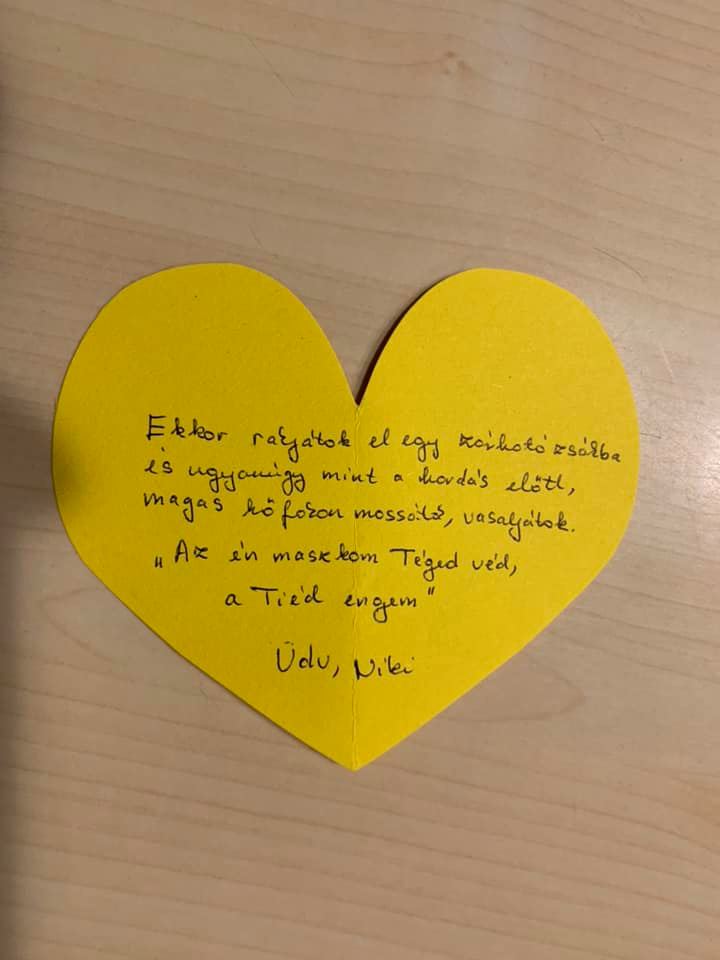 Ekkor rakjátok el egy zárható zsákba
és ugyanúgy mint a hordás előtt,
magas hőfokon mossátok, vasaljátok.
„Az én maszkom Téged véd,
a Tiéd engem"
Üdv, Niki